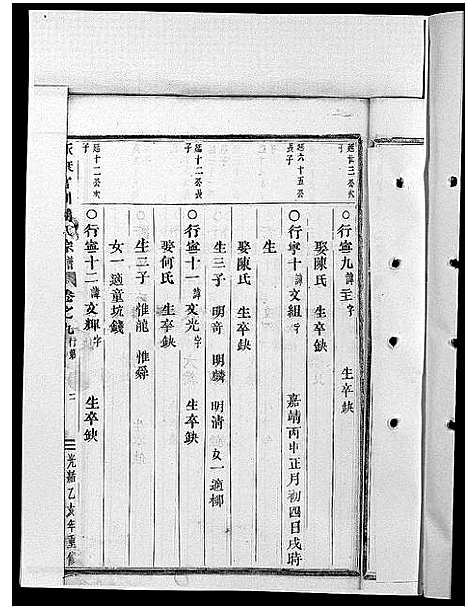 ○行寧九諱王字 生卒缺
娶陳氏 生卒缺
六十五公長子
○行寧十諱文組字 嘉靖丙申正月初四日戌時
生
娶陳氏 生卒缺
生三子 明奇 明麟 明清 女一適柳
廷十二公長子
○行寧十一諱文光字 生卒缺
娶何氏 生卒缺
生三子 惟龍 惟舜
女一適童坑錢
廷十二公次子
○行寧十二諱文輝字 生卒缺
氏宗譜 卷之九 行第 二 光緒乙亥年重修